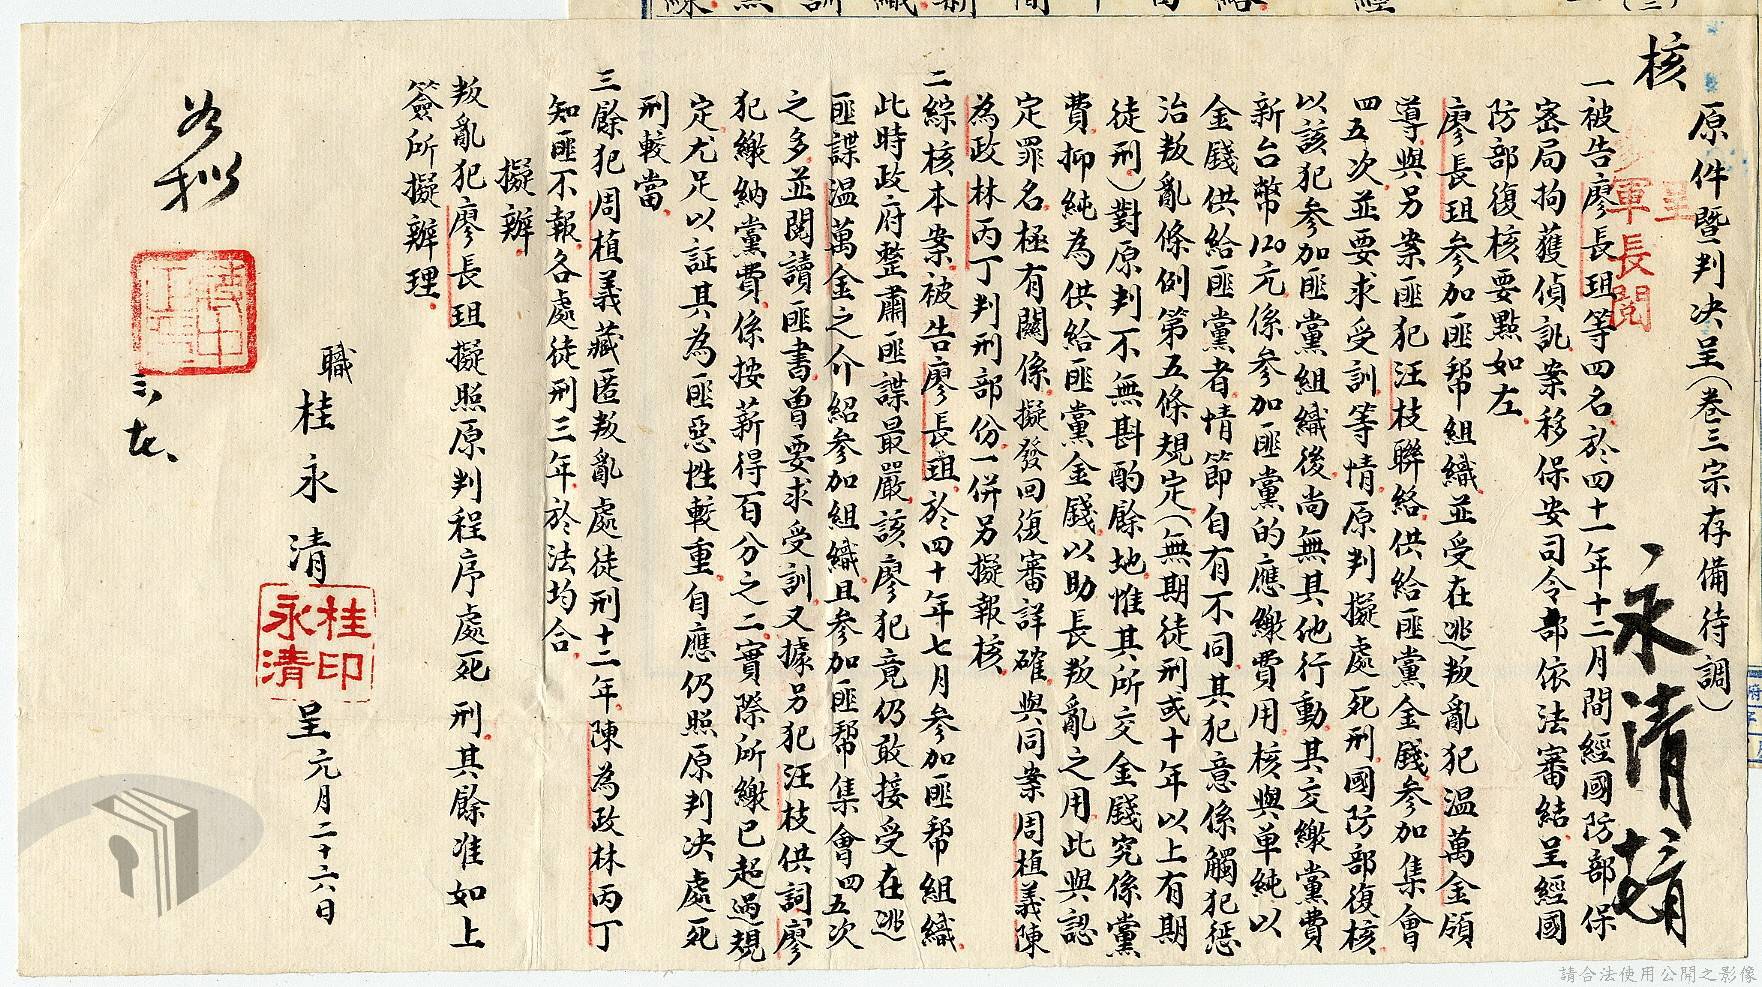 核
呈
軍長閱
原件暨判決呈(卷三宗存備待調)
一被告廖長珇等四名於四十一年十二月間經國防部保
密局拘獲偵訊案移保安司令部依法審結呈經國
防部復核要點如左
廖長珇參加匪幫組織並受在逃叛亂犯溫萬金領
導與另案匪犯汪枝聯絡供給匪黨金錢參加集會
四五次並要求受訓等情原判擬處死刑國防部復核
以該犯參加匪黨組織後尚無其他行動其交繳黨費
新台幣120元係參加匪黨的應繳費用核與單純以
金錢供給匪黨者情節自有不同其犯意係觸犯懲
治叛亂條例第五條規定(無期徒刑或十年以上有期
徒刑)對原判不無斟酌餘地惟其所交金錢究係黨
費抑純為供給匪黨金錢以助長叛亂之用此與認
定罪名極有關係擬發回復審詳確與同案周植義陳
為政林丙丁判刑部份一併另擬報核
二綜核本案被告廖長珇於四十年七月參加匪幫組織
此時政府整肅匪諜最嚴該廖犯竟仍敢接受在逃
匪諜溫萬金之介紹參加組織且參加匪幫集會四五次
之多並閱讀匪書曾要求受訓又據另犯汪枝供詞廖
犯繳納黨費係按薪得百分之二實際所繳已超過規
定尤足以証其為匪惡性較重自應仍照原判決處死
刑較當
三餘犯周植義藏匿叛亂處徒刑十二年陳為政林丙丁
知匪不報各處徒刑三年於法均合
擬辦
叛亂犯廖長珇擬照原判程序處死刑其餘准如上
簽所擬辦理
職桂永清呈元月二十六日
桂永清印
如擬
三、七、
請合法使用公開之影像